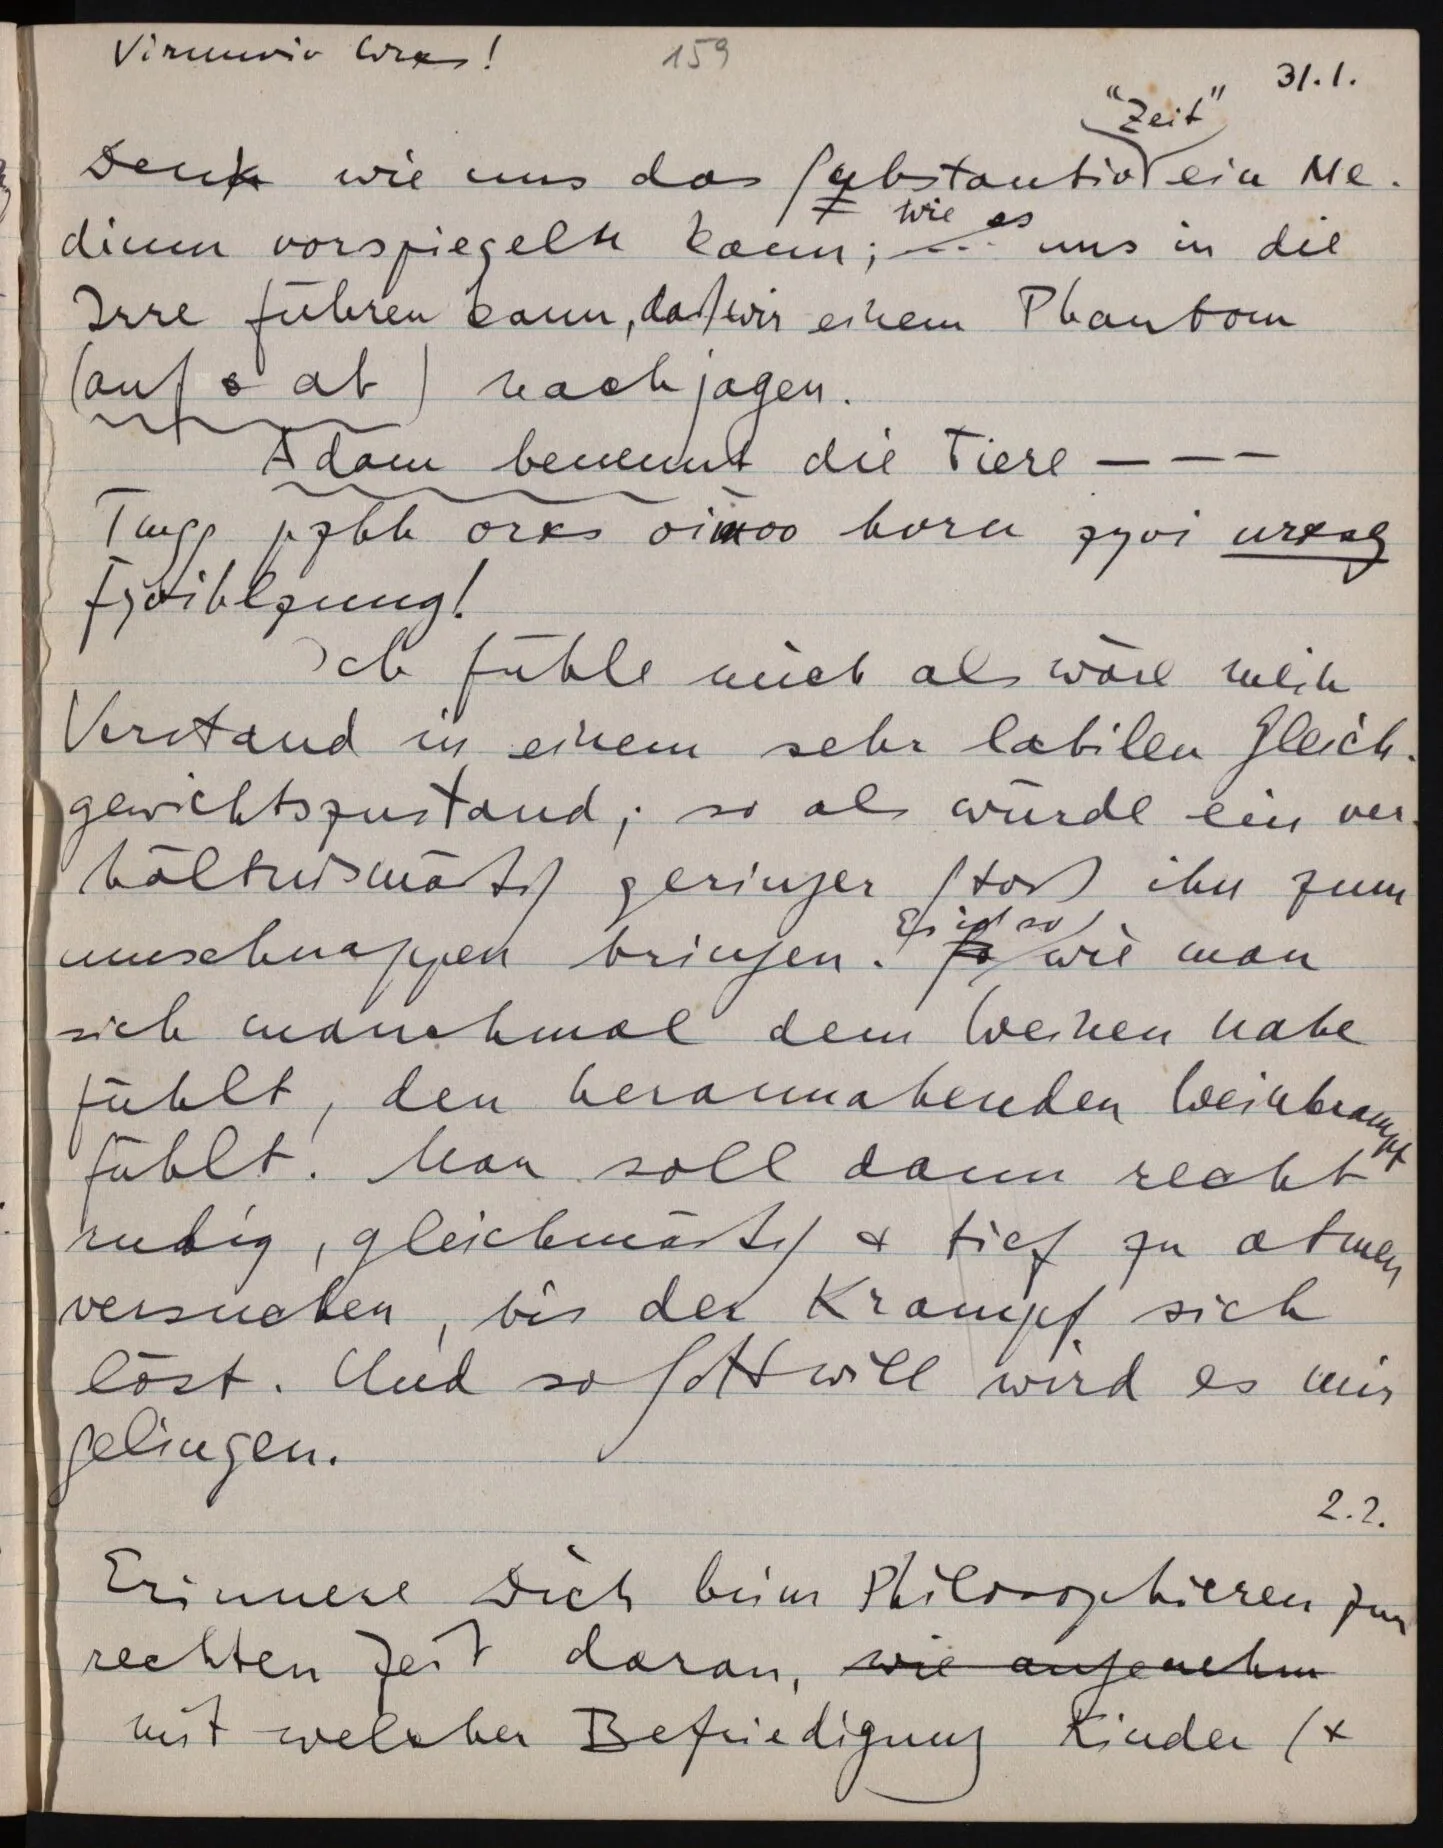 159
31.1.
Denk wie uns das Substantiv "Zeit" ein Me-
dium vorspiegeln kann; wie es uns in die
Irre führen kann, daß wir einem Phantom
(auf & ab) nachjagen.
Adam benennt die Tiere – – –
orxs horu
Ich fühle mich als wäre mein
Verstand in einem sehr labilen Gleich-
gewichtszustand; so als würde ein ver-
hältnismäßig geringer Stoß ihn zum
umschnappen bringen. Es ist so wie man
sich manchmal dem Weinen nahe
fühlt, den herannahenden Weinkrampf
fühlt. Man soll dann recht
ruhig, gleichmäßig & tief zu atmen
versuchen, bis der Krampf sich
löst. Und so Gott will wird es mir
gelingen.
2.2.
Erinnere Dich beim Philosophieren zur
rechten Zeit daran, wie angenehm
mit welcher Befriedigung Kinder (&